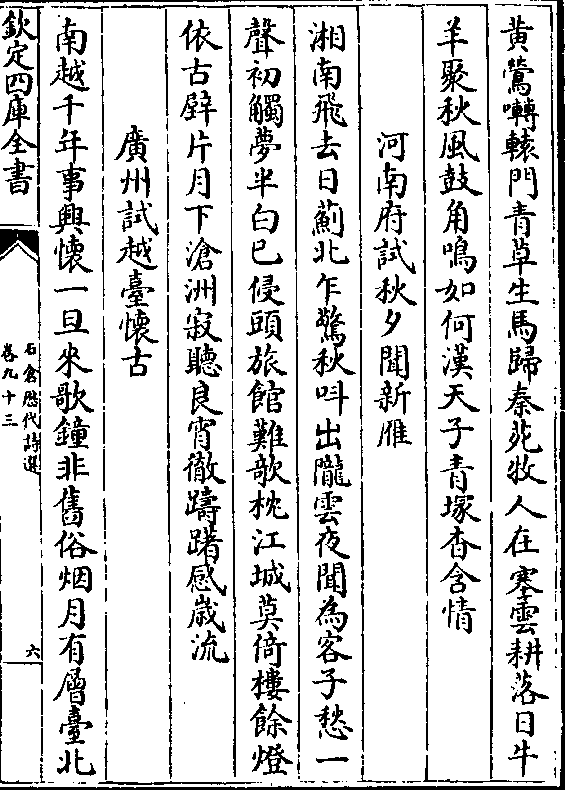 黄鶯囀轅門青草生馬歸秦苑牧人在塞雲耕落日牛
羊聚秋風鼓角鳴如何漢天子青塚杳含情
河南府試秋夕聞新雁
湘南飛去日薊北乍驚秋呌出隴雲夜聞為客子愁一
聲初觸夢半白已侵頭旅館難欹枕江城莫倚樓餘燈
依古壁片月下滄洲寂聽良宵徹躊躇感嵗流
廣州試越臺懷古
南越千年事興懷一旦來歌鐘非舊俗烟月有層臺北
欽定四庫全書
石倉歴代詩選
卷九十三
六